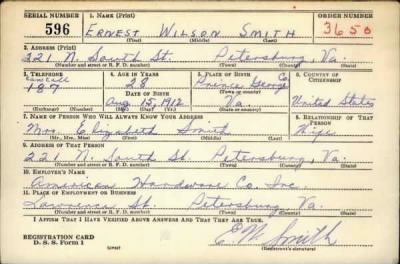 SERIAL NUMBER 1. NAME (Print) ORDER NUMBER
596 ERNEST WILSON SMITH 3650
(First) (Middle) (Last)
2. ADDRESS (Print)
221 N. South St. Petersburg, Va.
(Number and street or R. F. D. number) (Town) (County) (State)
3. TELEPHONE 4. AGE IN YEARS 5. PLACE OF BIRTH 6. COUNTRY OF CITIZENSHIP
28 Prince George Co
187 DATE OF BIRTH (Town or county)
Aug 15, 1912 Va. United States
(Exchange) (Number) (Mo.) (Day) (Yr.) (State or country)
7. NAME OF PERSON WHO WILL ALWAYS KNOW YOUR ADDRESS 8. RELATIONSHIP OF THAT PERSON
Mrs. Elizabeth Smith Wife
(Mr., Mrs., Miss) (First) (Middle) (Last)
9. ADDRESS OF THAT PERSON
221 N. South St. Petersburg, Va.
(Number and street or R. F. D. number) (Town) (County) (State)
10. EMPLOYER'S NAME
American Hardware Co. Inc.
11. PLACE OF EMPLOYMENT OR BUSINESS
Lawrence St. Petersburg, Va.
(Number and street or R. F. D. number) (Town) (County) (State)
I AFFIRM THAT I HAVE VERIFIED ABOVE ANSWERS AND THAT THEY ARE TRUE.
REGISTRATION CARD E W Smith
D. S. S. Form 1 (over) (Registrant's signature)